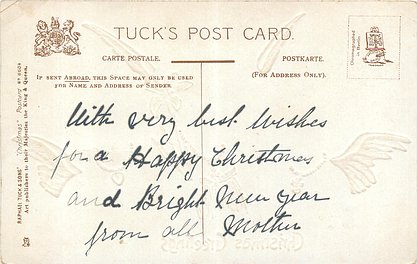 TUCK'S POST CARD.
CARTE POSTALE.
POSTKARTE.
IF SENT ABROAD, THIS SPACE MAY ONLY BE USED
FOR NAME AND ADDRESS OF SENDER
(FOR ADDRESS ONLY).
With very best wishes
for a Happy Christmas
and Bright New year
from all Mother
RAPHAEL TUCK & SONS'
Art publishers to their Majesties the King & Queen.
Chromographed
in Berlin
Christmas Greetings